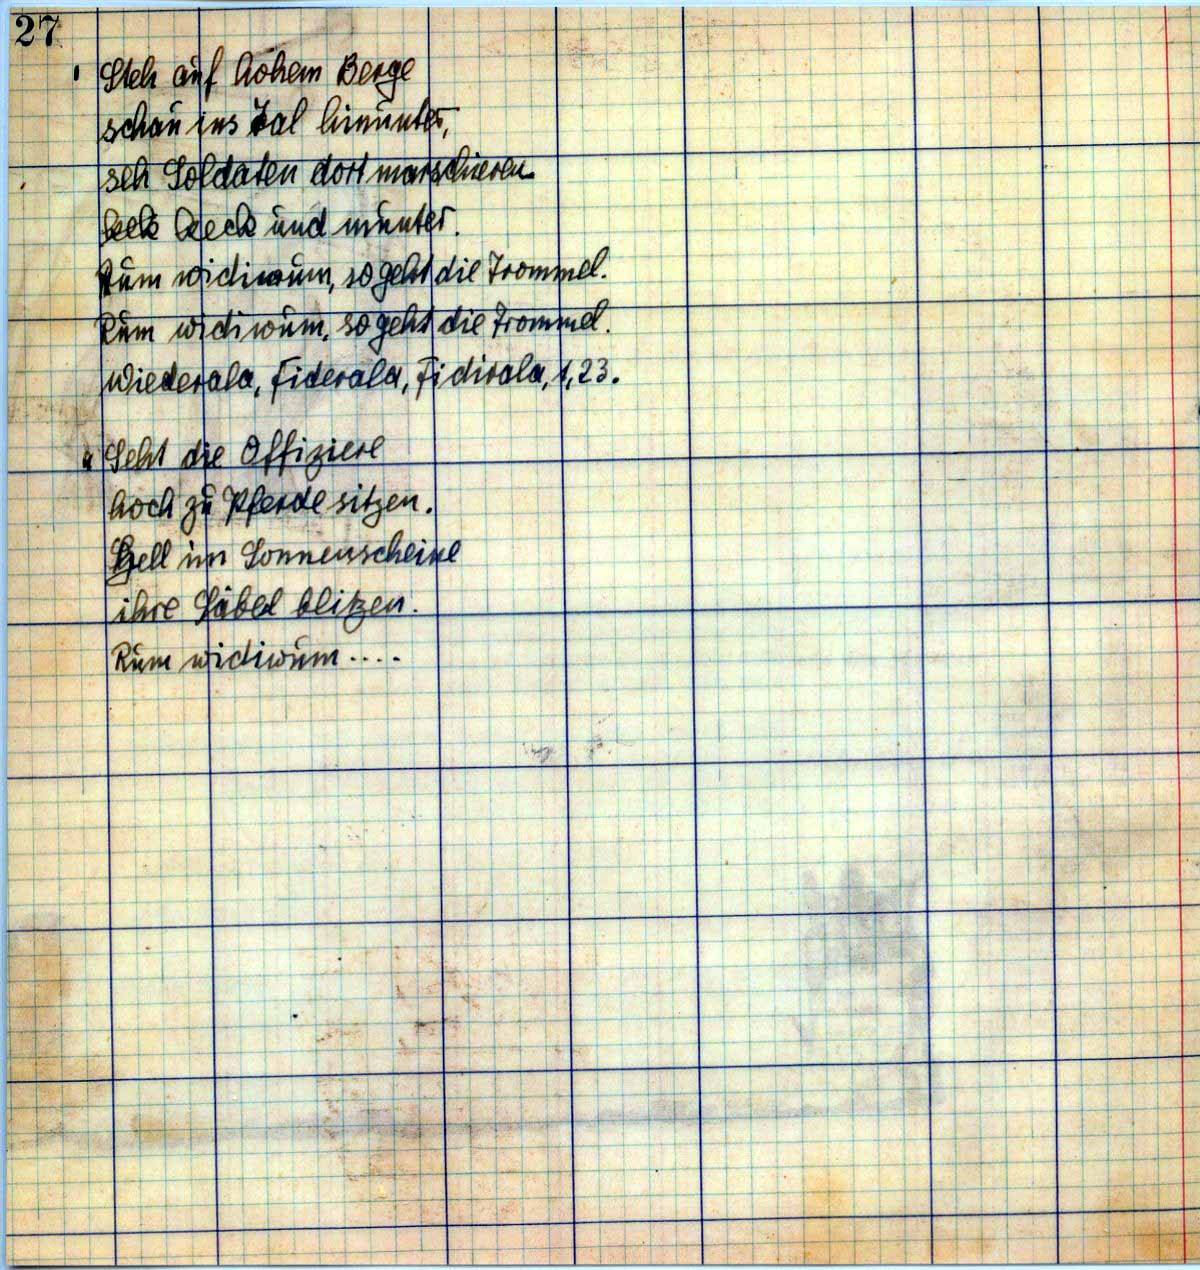 27
Steh auf hohem Berge
schau ins Tal hinunter,
seh Soldaten dort marschieren.
keck keck und munter.
Rum widiwum, so geht die Trommel.
Rum widiwum, so geht die Trommel.
Wiederala, Fiderala, Fidirala, 1, 23.
Seht die Offiziere
hoch zu Pferde sitzen.
Hell im Sonnenscheine
ihre Säbel blitzen.
Rum widiwum ....